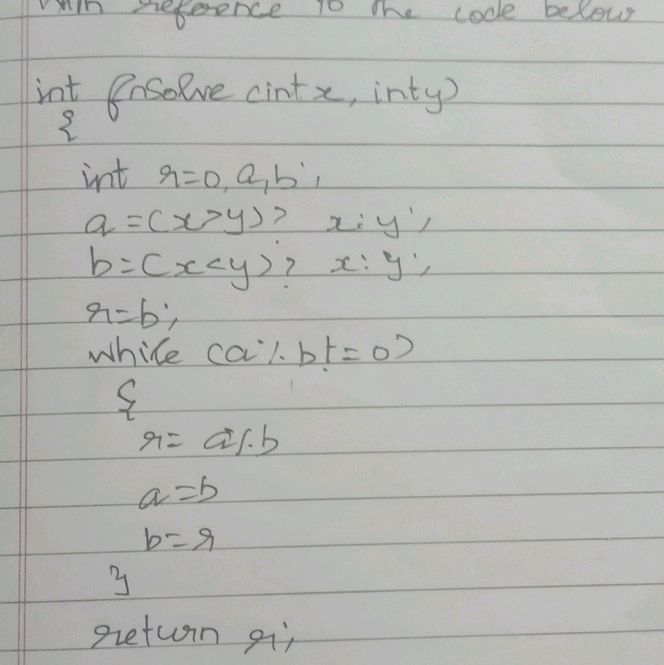 with reference to the code below
int fnsolve (int x, int y)
{
int r=0, a, b;
a = (x>y)? x:y;
b = (x<y)? x:y;
r=b;
while (a%b!=0)
{
r= a%b
a=b
b=r
}
return r;